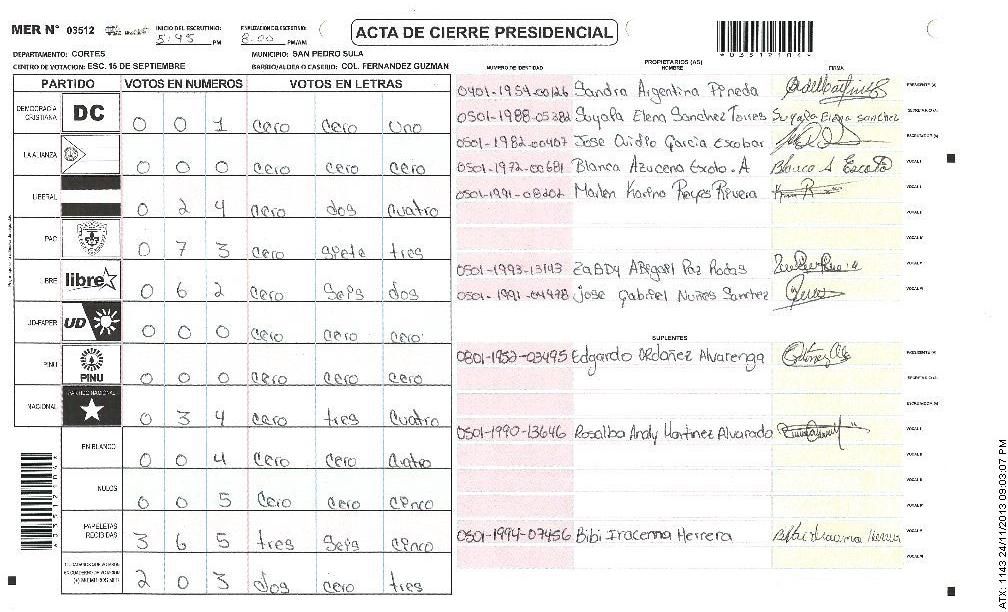 MER Nº 03512
INICIO DEL ESCRUTINIO: 5:45 PM
FINALIZACION DEL ESCRUTINIO: 8:00 PM/AM
ACTA DE CIERRE PRESIDENCIAL
DEPARTAMENTO: CORTES
MUNICIPIO: SAN PEDRO SULA
CENTRO DE VOTACION: ESC. 15 DE SEPTIEMBRE
BARRIO/ALDEA O CASERIO: COL. FERNANDEZ GUZMAN
PARTIDO VOTOS EN NUMEROS VOTOS EN LETRAS
DEMOCRACIA CRISTIANA DC 0 0 1 cero cero uno
LA ALIANZA 0 0 0 cero cero cero
LIBERAL 0 2 4 cero dos cuatro
PAC 0 7 3 cero siete tres
LIBRE libre 0 6 2 cero seis dos
UD-FAPER UD 0 0 0 cero cero cero
PINU PINU 0 0 0 cero cero cero
NACIONAL PARTIDO NACIONAL 0 3 4 cero tres cuatro
EN BLANCO 0 0 4 cero cero cuatro
NULOS 0 0 5 cero cero cinco
PAPELETAS RECIBIDAS 3 6 5 tres seis cinco
2 0 3 dos cero tres
PROPIETARIOS (AS)
NUMERO DE IDENTIDAD NOMBRE FIRMA
0401-1954-00126 Sandra Argentina Pineda PRESIDENTE (A)
0501-1988-05382 Suyapa Elena Sanchez Torres Suyapa Elena Sanchez SECRETARIO (A)
0501-1982-00407 Jose Ovidio Garcia Escobar ESCRUTADOR (A)
0501-1972-00681 Blanca Azucena Escoto. A Blanca A Escoto VOCAL I
0501-1991-08202 Marlen Karina Reyes Rivera
0501-1993-13143 Zabdy Abigail Paz Rodas
0501-1991-04478 jose Gabriel Nuñes Sanchez
SUPLENTES
0801-1952-03495 Edgardo Ordoñez Alvarenga PRESIDENTE (A)
SECRETARIO (A)
ESCRUTADOR (A)
0501-1990-13646 Rosalba Andy Martinez Alvarado
0501-1994-07456 Bibi Iracema Herrera Bibi Iracema Herrera
ATX: 1143 24/11/2013 09:03:07 PM